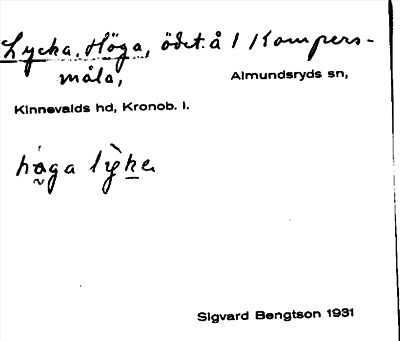 Lycka, Höga, ödet. å 1 Kompers-
måla, Almundsryds sn,
Kinnevalds hd, Kronob. l.
håga lỳke
Sigvard Bengtson 1931